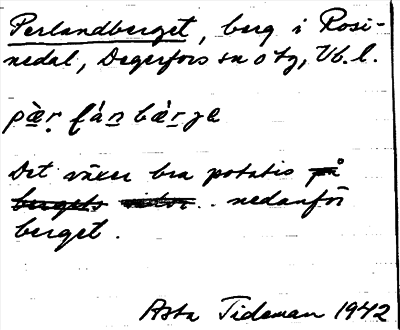 Perlandberget, berg i Rosi-
nedal, Degerfors sn o tg, Vb. l.
pæ̀r̥ fá̀n bæ̀rgə
Det växer bra potatis på
bergets sidor . nedanför
berget .
Asta Tideman 1942